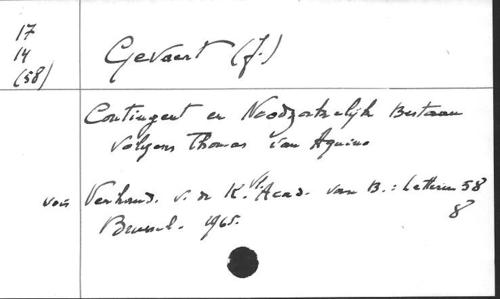 17
14
(58)
Gevaert (J.)
Contingent en Noodzakelijk Bestaan
volgens Thomas van Aquino
voir Verhand. v. de K. Vl. Acad. van B.: Letteren 58
8
Brussel. 1965.